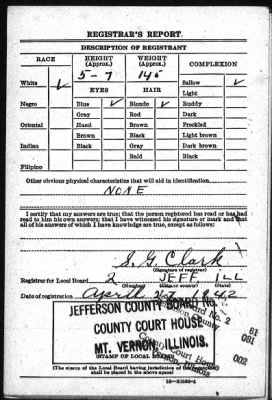 REGISTRAR'S REPORT
DESCRIPTION OF REGISTRANT
RACE HEIGHT (Approx.) WEIGHT (Approx.) COMPLEXION
5-7 145
White ✓ Sallow ✓
EYES HAIR Light
Negro Blue ✓ Blonde ✓ Ruddy
Gray Red Dark
Oriental Hazel Brown Freckled
Brown Black Light brown
Indian Black Gray Dark brown
Bald Black
Filipino
Other obvious physical characteristics that will aid in identification
NONE
I certify that my answers are true; that the person registered has read or has had
read to him his own answers; that I have witnessed his signature or mark and that
all of his answers of which I have knowledge are true, except as follows:
S. G. Clark
(Signature of registrar)
Registrar for Local Board 2 JEFF. ILL
(Number) (City or county) (State)
Date of registration April 27 1942
JEFFERSON COUNTY BOARD NO.
COUNTY COURT HOUSE
MT. VERNON, ILLINOIS.
Board No. 2
County
County Court House
Illinois
(STAMP OF LOCAL BOARD)
(The stamp of the Local Board having jurisdiction of the registrant
shall be placed in the above space)